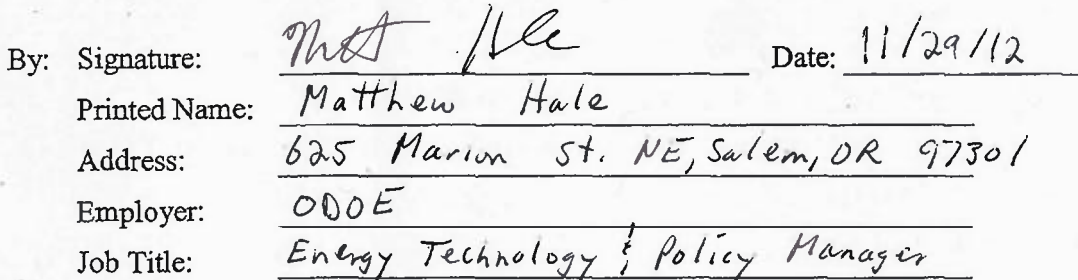 By: Signature: Matt Hale Date: 11/29/12
Printed Name: Matthew Hale
Address: 625 Marion St. NE, Salem, OR 97301
Employer: ODOE
Job Title: Energy Technology & Policy Manager